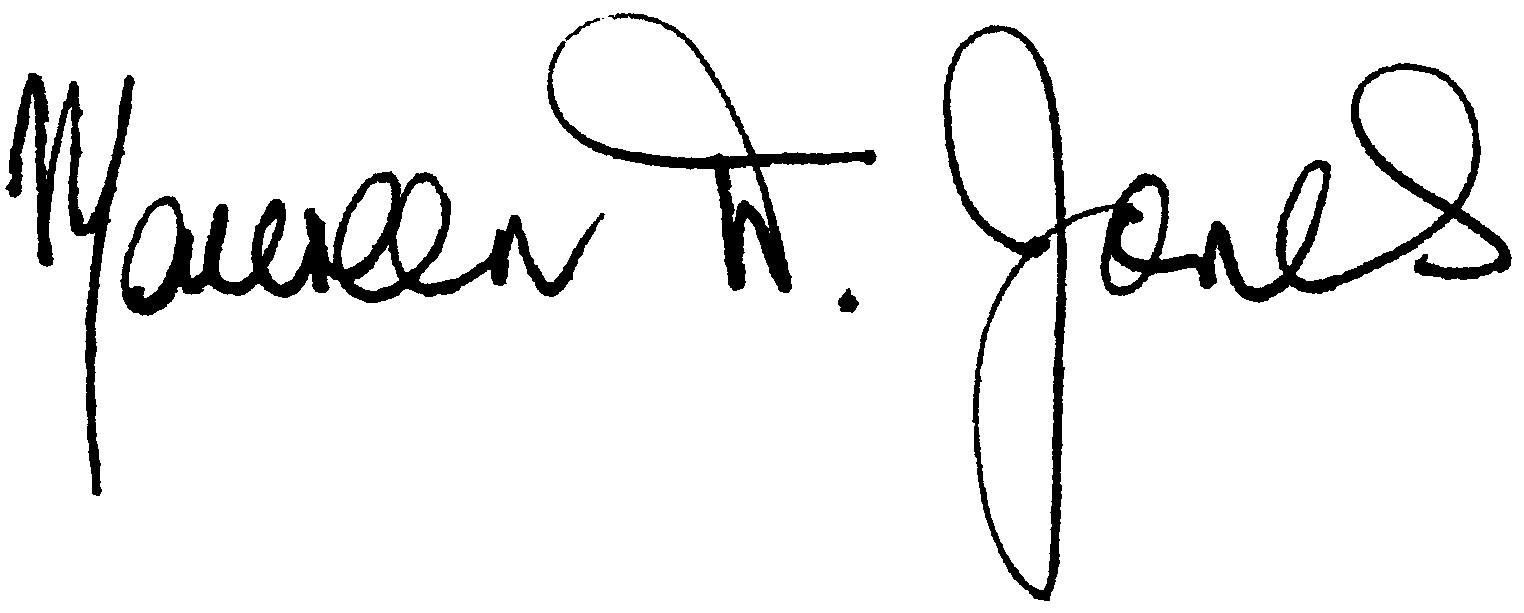 Maureen W. Jones